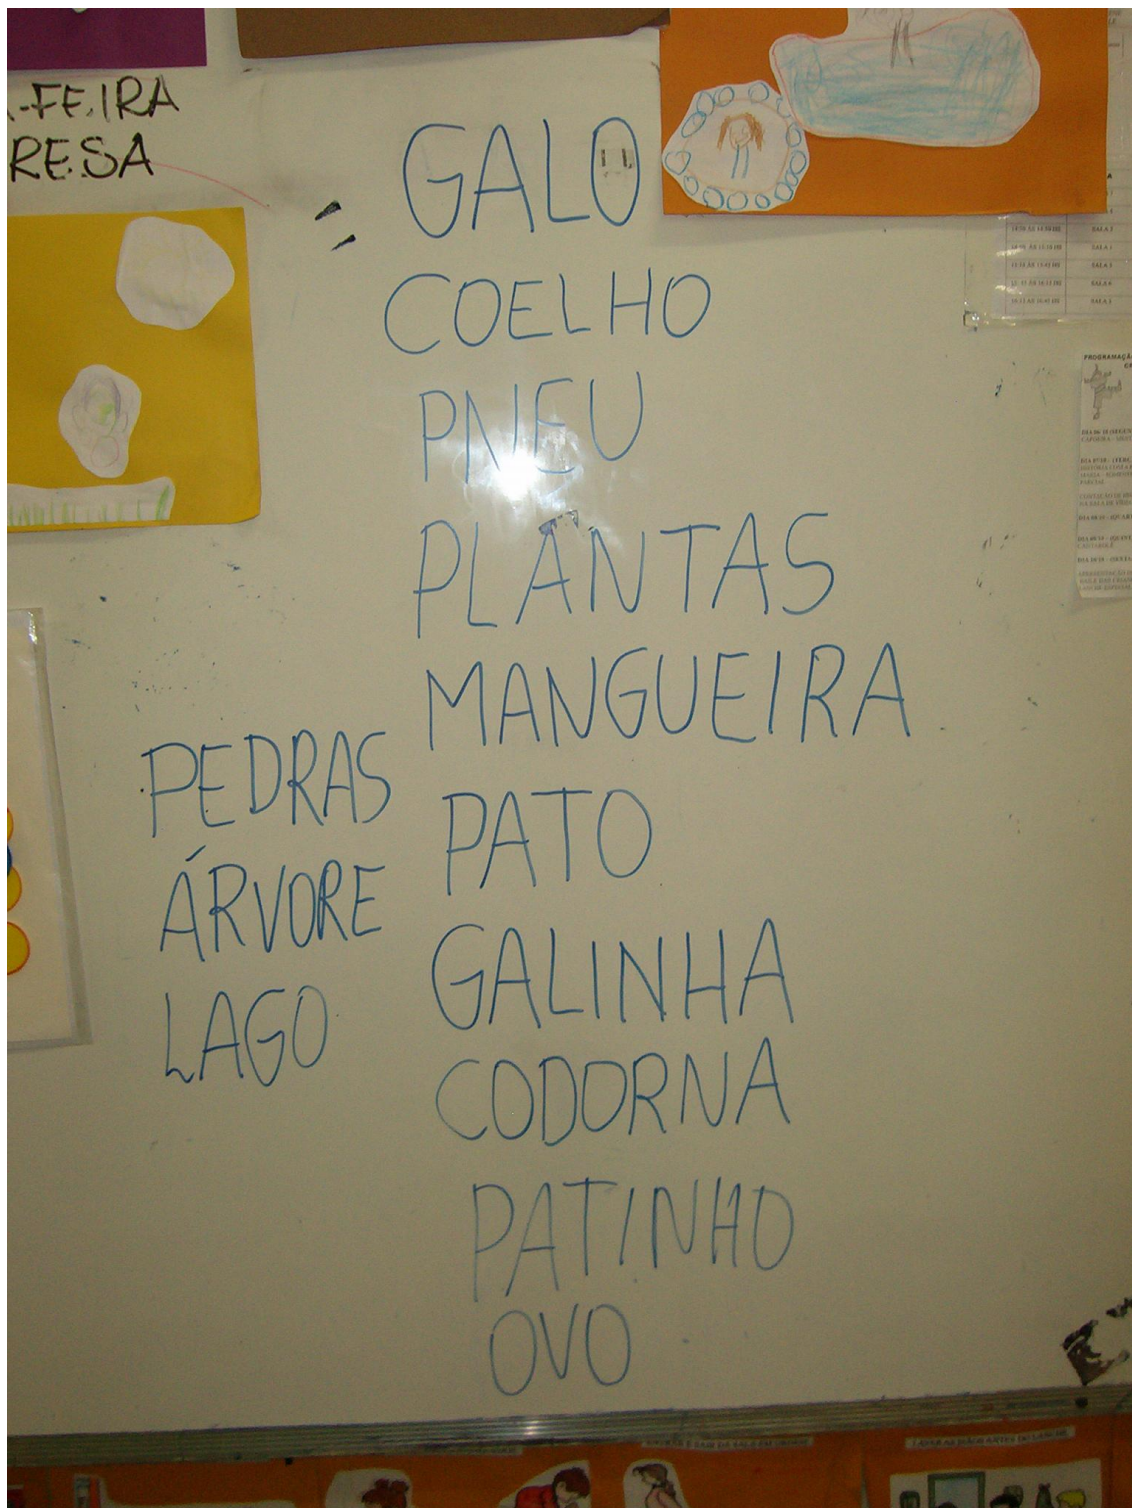 -FEIRA
RESA
GALO
COELHO
PNEU
PLANTAS
MANGUEIRA
PATO
GALINHA
CODORNA
PATINHO
OVO
PEDRAS
ÁRVORE
LAGO
SALA 2
SALA 1
PROGRAMAÇÃ